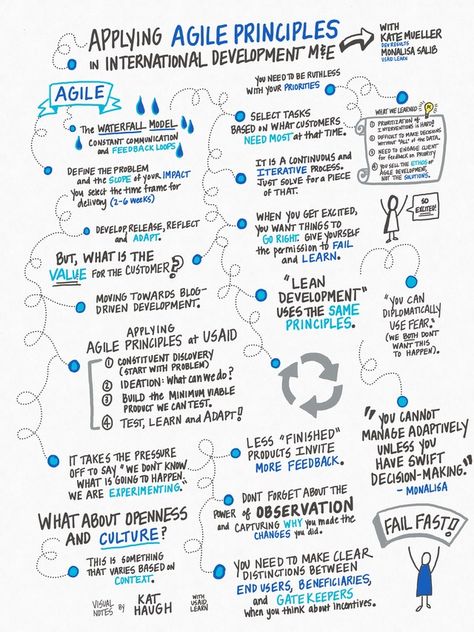 APPLYING AGILE PRINCIPLES
IN INTERNATIONAL DEVELOPMENT M&E
WITH
KATE MUELLER
DEV RESULTS
MONALISA SALIB
USAID LEARN
AGILE
The WATERFALL MODEL
CONSTANT COMMUNICATION
and FEEDBACK LOOPS
DEFINE THE PROBLEM
and the SCOPE of YOUR IMPACT
You SELECT THE TIME FRAME for
delivery (2-6 weeks)
DEVELOP, RELEASE, REFLECT
and ADAPT.
BUT, WHAT IS THE
VALUE FOR THE CUSTOMER?
MOVING TOWARDS BLOG-
DRIVEN DEVELOPMENT.
APPLYING
AGILE PRINCIPLES at USAID
1 CONSTITUENT DISCOVERY
(START WITH PROBLEM)
2 IDEATION: WHAT CAN WE DO?
3 BUILD THE MINIMUM VIABLE
PRODUCT WE CAN TEST.
4 TEST, LEARN and ADAPT!
IT TAKES THE PRESSURE
OFF TO SAY "WE DON'T KNOW
WHAT IS GOING TO HAPPEN.
WE ARE EXPERIMENTING."
WHAT ABOUT OPENNESS
AND CULTURE?
THIS IS SOMETHING
THAT VARIES BASED ON
CONTEXT.
VISUAL
NOTES
BY
KAT
HAUGH
WITH
USAID
LEARN
YOU NEED TO BE RUTHLESS
WITH YOUR PRIORITIES
SELECT TASKS
BASED ON WHAT CUSTOMERS
NEED MOST AT THAT TIME.
IT IS A CONTINUOUS AND
ITERATIVE PROCESS.
JUST SOLVE FOR A PIECE
OF THAT.
WHEN YOU GET EXCITED,
YOU WANT THINGS TO
GO RIGHT. GIVE YOURSELF
THE PERMISSION TO FAIL
and LEARN.
"LEAN
DEVELOPMENT"
USES THE SAME
PRINCIPLES.
LESS "FINISHED"
PRODUCTS INVITE
MORE FEEDBACK.
DONT FORGET ABOUT THE
POWER OF OBSERVATION
and CAPTURING WHY YOU MADE THE
CHANGES YOU DID.
YOU NEED TO MAKE CLEAR
DISTINCTIONS BETWEEN
END USERS, BENEFICIARIES,
and GATEKEEPERS
when YOU THINK ABOUT INCENTIVES.
WHAT WE LEARNED
1 PRIORITIZATION OF
INTERVENTIONS IS HARD!
2 DIFFICULT TO MAKE DECISIONS
WITHOUT "ALL" OF THE DATA.
3 NEED TO ENGAGE CLIENT
for FEEDBACK ON PRIORITY
4 YOU SELL THE ETHOS OF
AGILE DEVELOPMENT,
NOT THE SOLUTIONS.
SO
EXCITED!
"YOU CAN
DIPLOMATICALLY
USE FEAR."
(WE BOTH DONT
WANT THIS
TO HAPPEN).
"YOU CANNOT
MANAGE ADAPTIVELY
UNLESS YOU
HAVE SWIFT
DECISION-MAKING."
- MONALISA
FAIL FAST!!